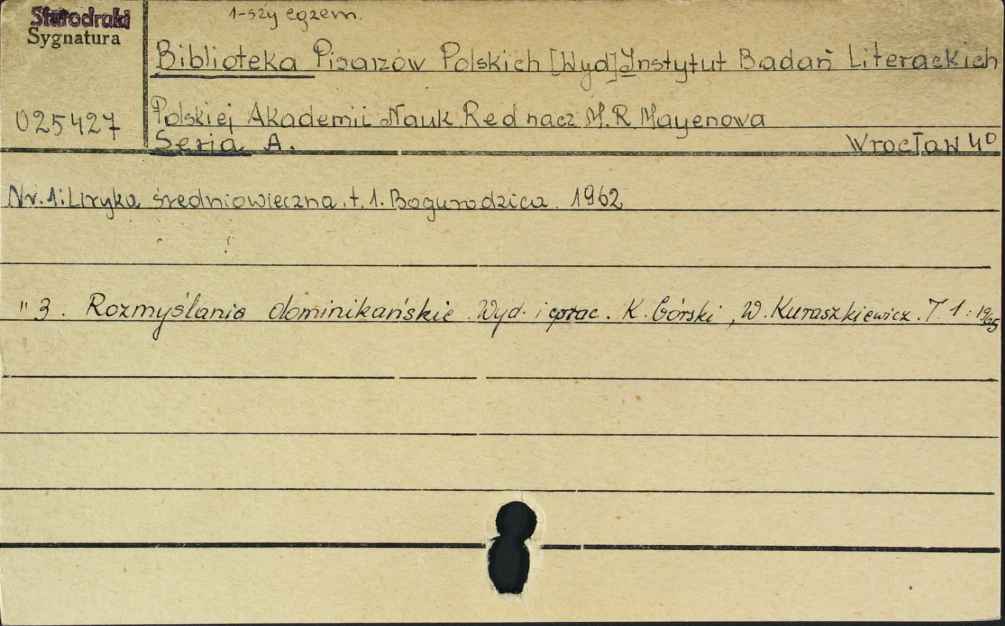 Starodruki
1-szy egzem.
Sygnatura
Biblioteka Pisarzów Polskich [Wyd] Instytut Badań Literackich
025427
Polskiej Akademii Nauk. Red nacz M. R. Mayenowa
Seria A. Wrocław 4°
Nr. 1: Liryka średniowieczna. t. 1. Bogurodzica. 1962
" 3. Rozmyślania dominikańskie. Wyd. i oprac. K. Górski, W. Kuraszkiewicz. T 1: 1965